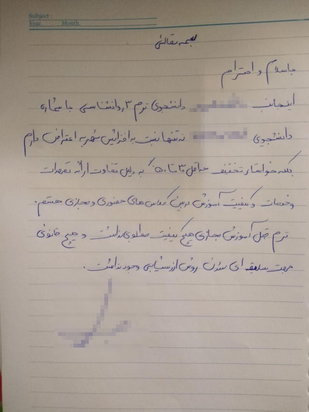 Subject:
Year. Month.
بسمه تعالی
با سلام و احترام
اینجانب دانشجوی ترم ۲ روانشناسی با شماره
دانشجوی نه تنها نسبت به افزایش شهریه اعتراض دارم
بلکه خواستار تخفیف حداقل ۳۰ تا ۵۰ که به دلیل تفاوت ارائه تعهدات
و خدمات و کیفیت آموزش درمیان کلاس های حضوری و مجازی هستم.
ترم قبل آموزش مجازی هیچ کیفیت مطلوبی نداشت و هیچ قانونی
جهت سلیقه ای نبودن روش ارزشیابی وجود نداشت.